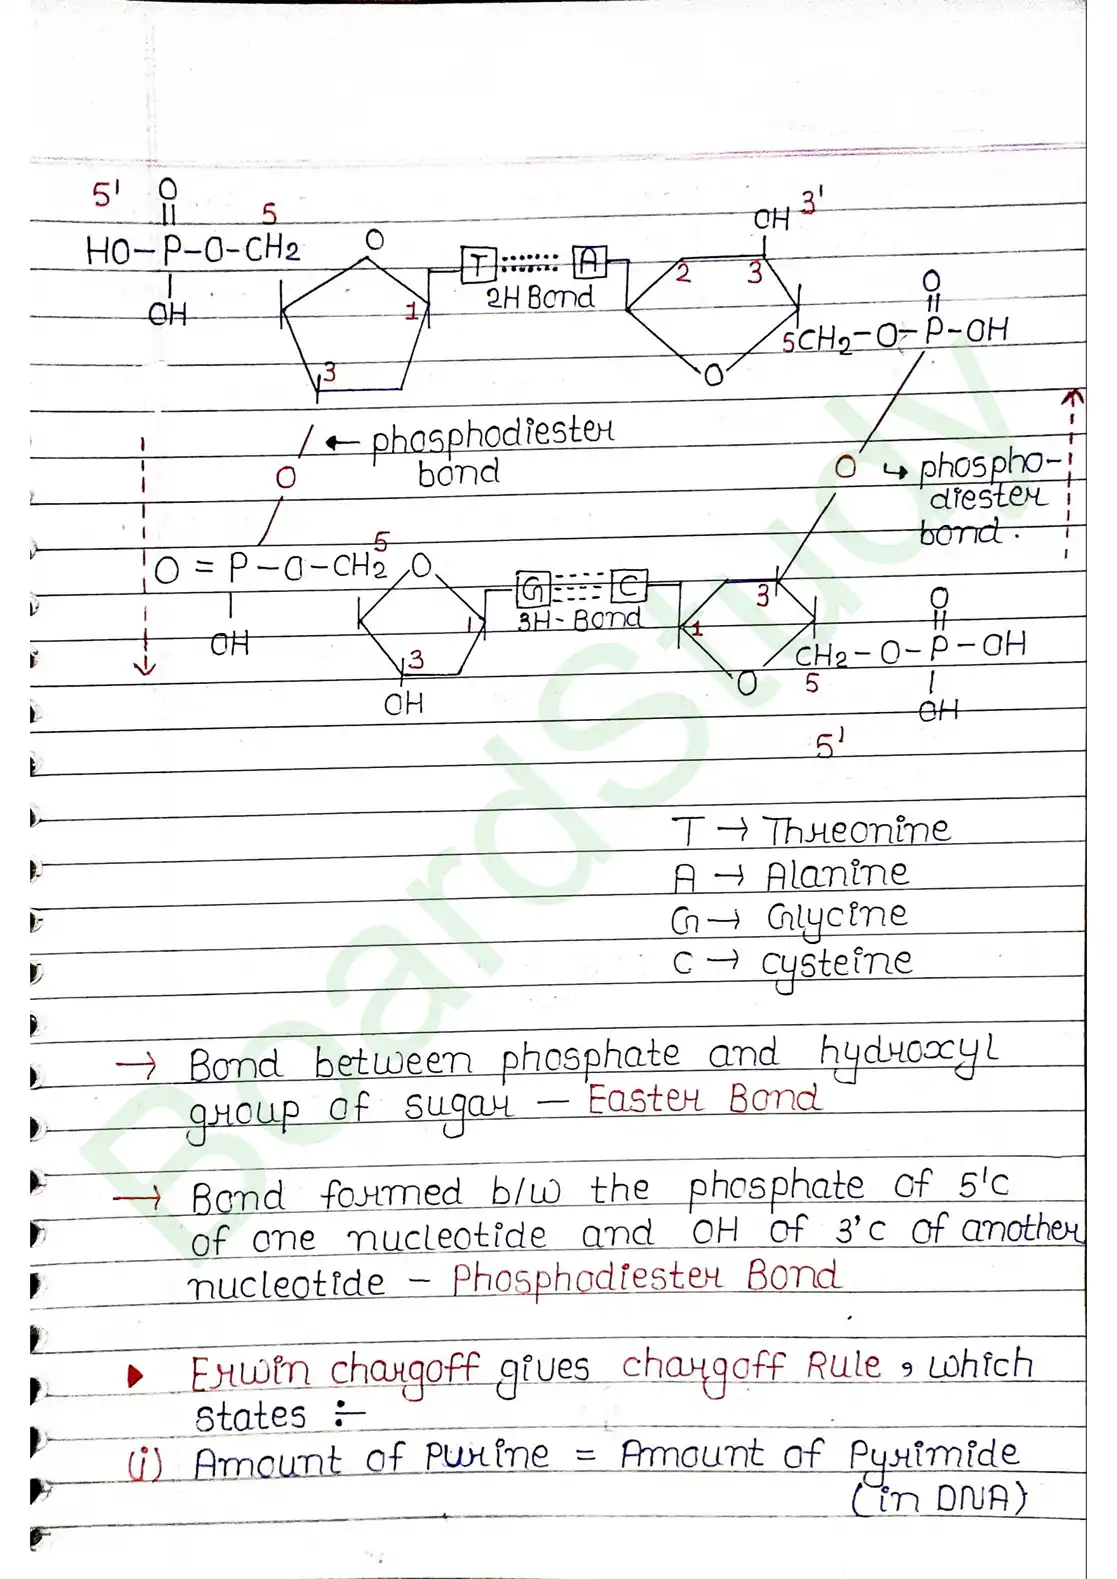 5' O
5
HO-P-O-CH2 O
OH
1
3
T A
2H Bond
OH 3'
2 3
O
5CH2-O-P-OH
O
← phosphodiester
bond
O
O ↳ phospho-
diester
bond.
5
O = P-O-CH2 O
OH
1
3
OH
G C
3H-Bond
3
1
O
O
CH2-O-P-OH
5
OH
5'
T → Threonine
A → Alanine
G → Glycine
C → cysteine
→ Bond between phosphate and hydroxyl
group of sugar — Easter Bond
→ Bond formed b/w the phosphate of 5'c
of one nucleotide and OH of 3'c of another
nucleotide - Phosphodiester Bond
▶ Erwin chargoff gives chargoff Rule, which
states :-
(i) Amount of Purine = Amount of Pyrimide
(in DNA)
BoardStudy